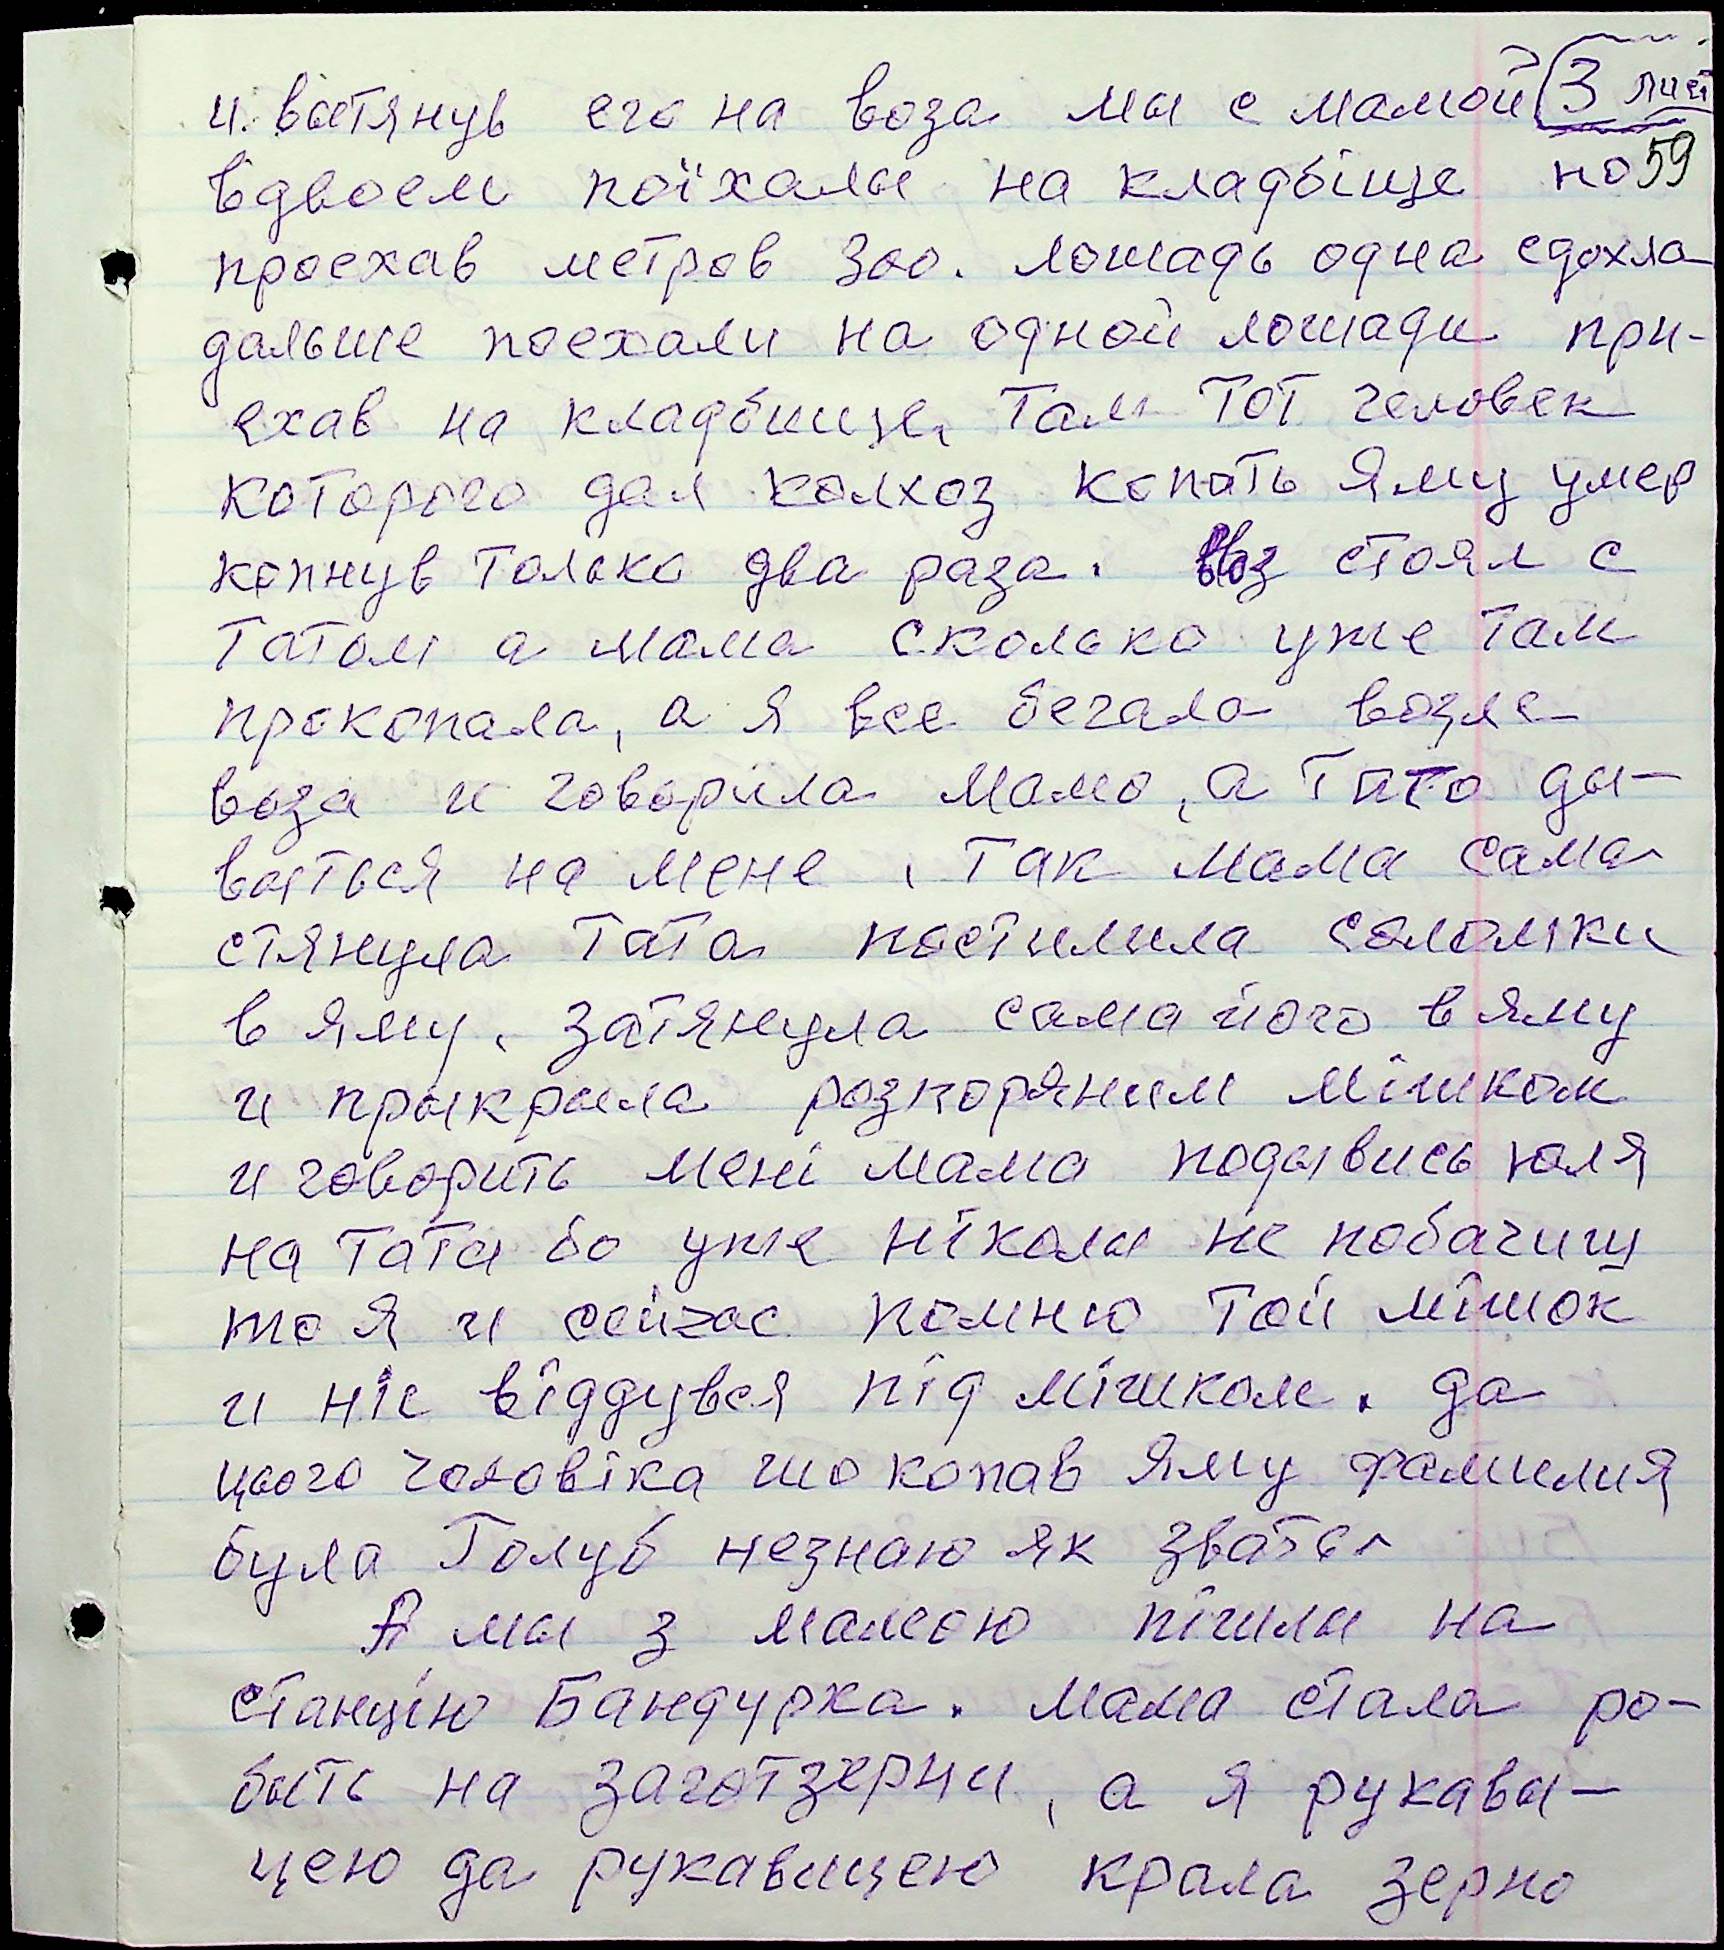 и вытянув его на воза мы с мамой 3 лист
вдвоем поїхалы на кладбіще но 59
проехав метров 300. лошадь одна сдохла
дальше поехали на одной лошади при-
ехав на кладбище, там тот человек
которого дал колхоз копать яму умер
копнув только два раза. Воз стоял с
татом а мама сколько уже там
прокопала, а я все бегала возле
воза и говорила мамо, а тато ды-
выться на мене, так мама сама
стянула тата постилила соломки
в яму, затянула сама його в яму
и прыкрыла розпоряним мішком
и говорить мені мама подывись юля
на тата бо уже ніколы не побачиш
то я и сейчас помню той мішок
и ніс віддувся під мішком. да
цього чоловіка шо копав яму фамилия
була Голуб незнаю як звать
А мы з мамою пішлы на
станцію Бандурка. мама стала ро-
быть на заготзерни, а я рукавы-
цею да рукавицею крала зерно